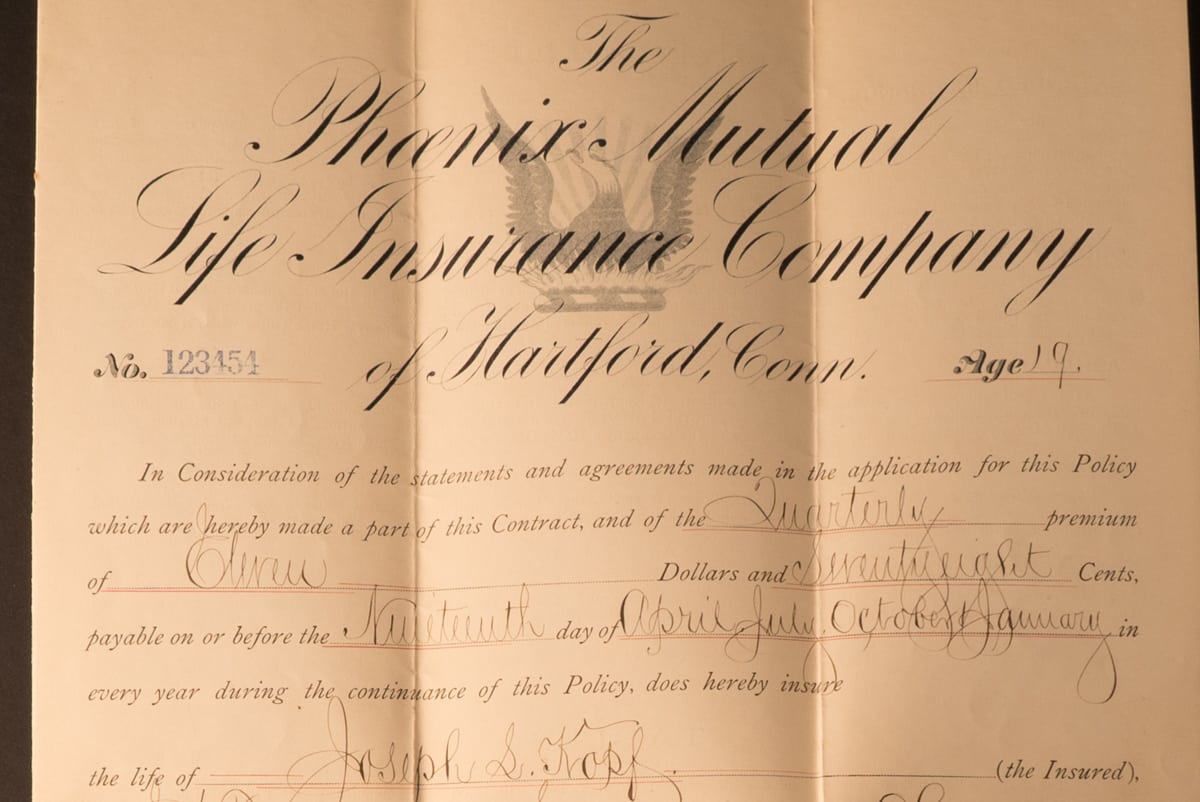 The
Phœnix Mutual
Life Insurance Company
No. 123454 of Hartford, Conn. Age 19.
In Consideration of the statements and agreements made in the application for this Policy
which are hereby made a part of this Contract, and of the Quarterly premium
of Eleven Dollars and Seventy eight Cents,
payable on or before the Nineteenth day of April, July, October & January in
every year during the continuance of this Policy, does hereby insure
the life of Joseph S. Kopf. (the Insured),